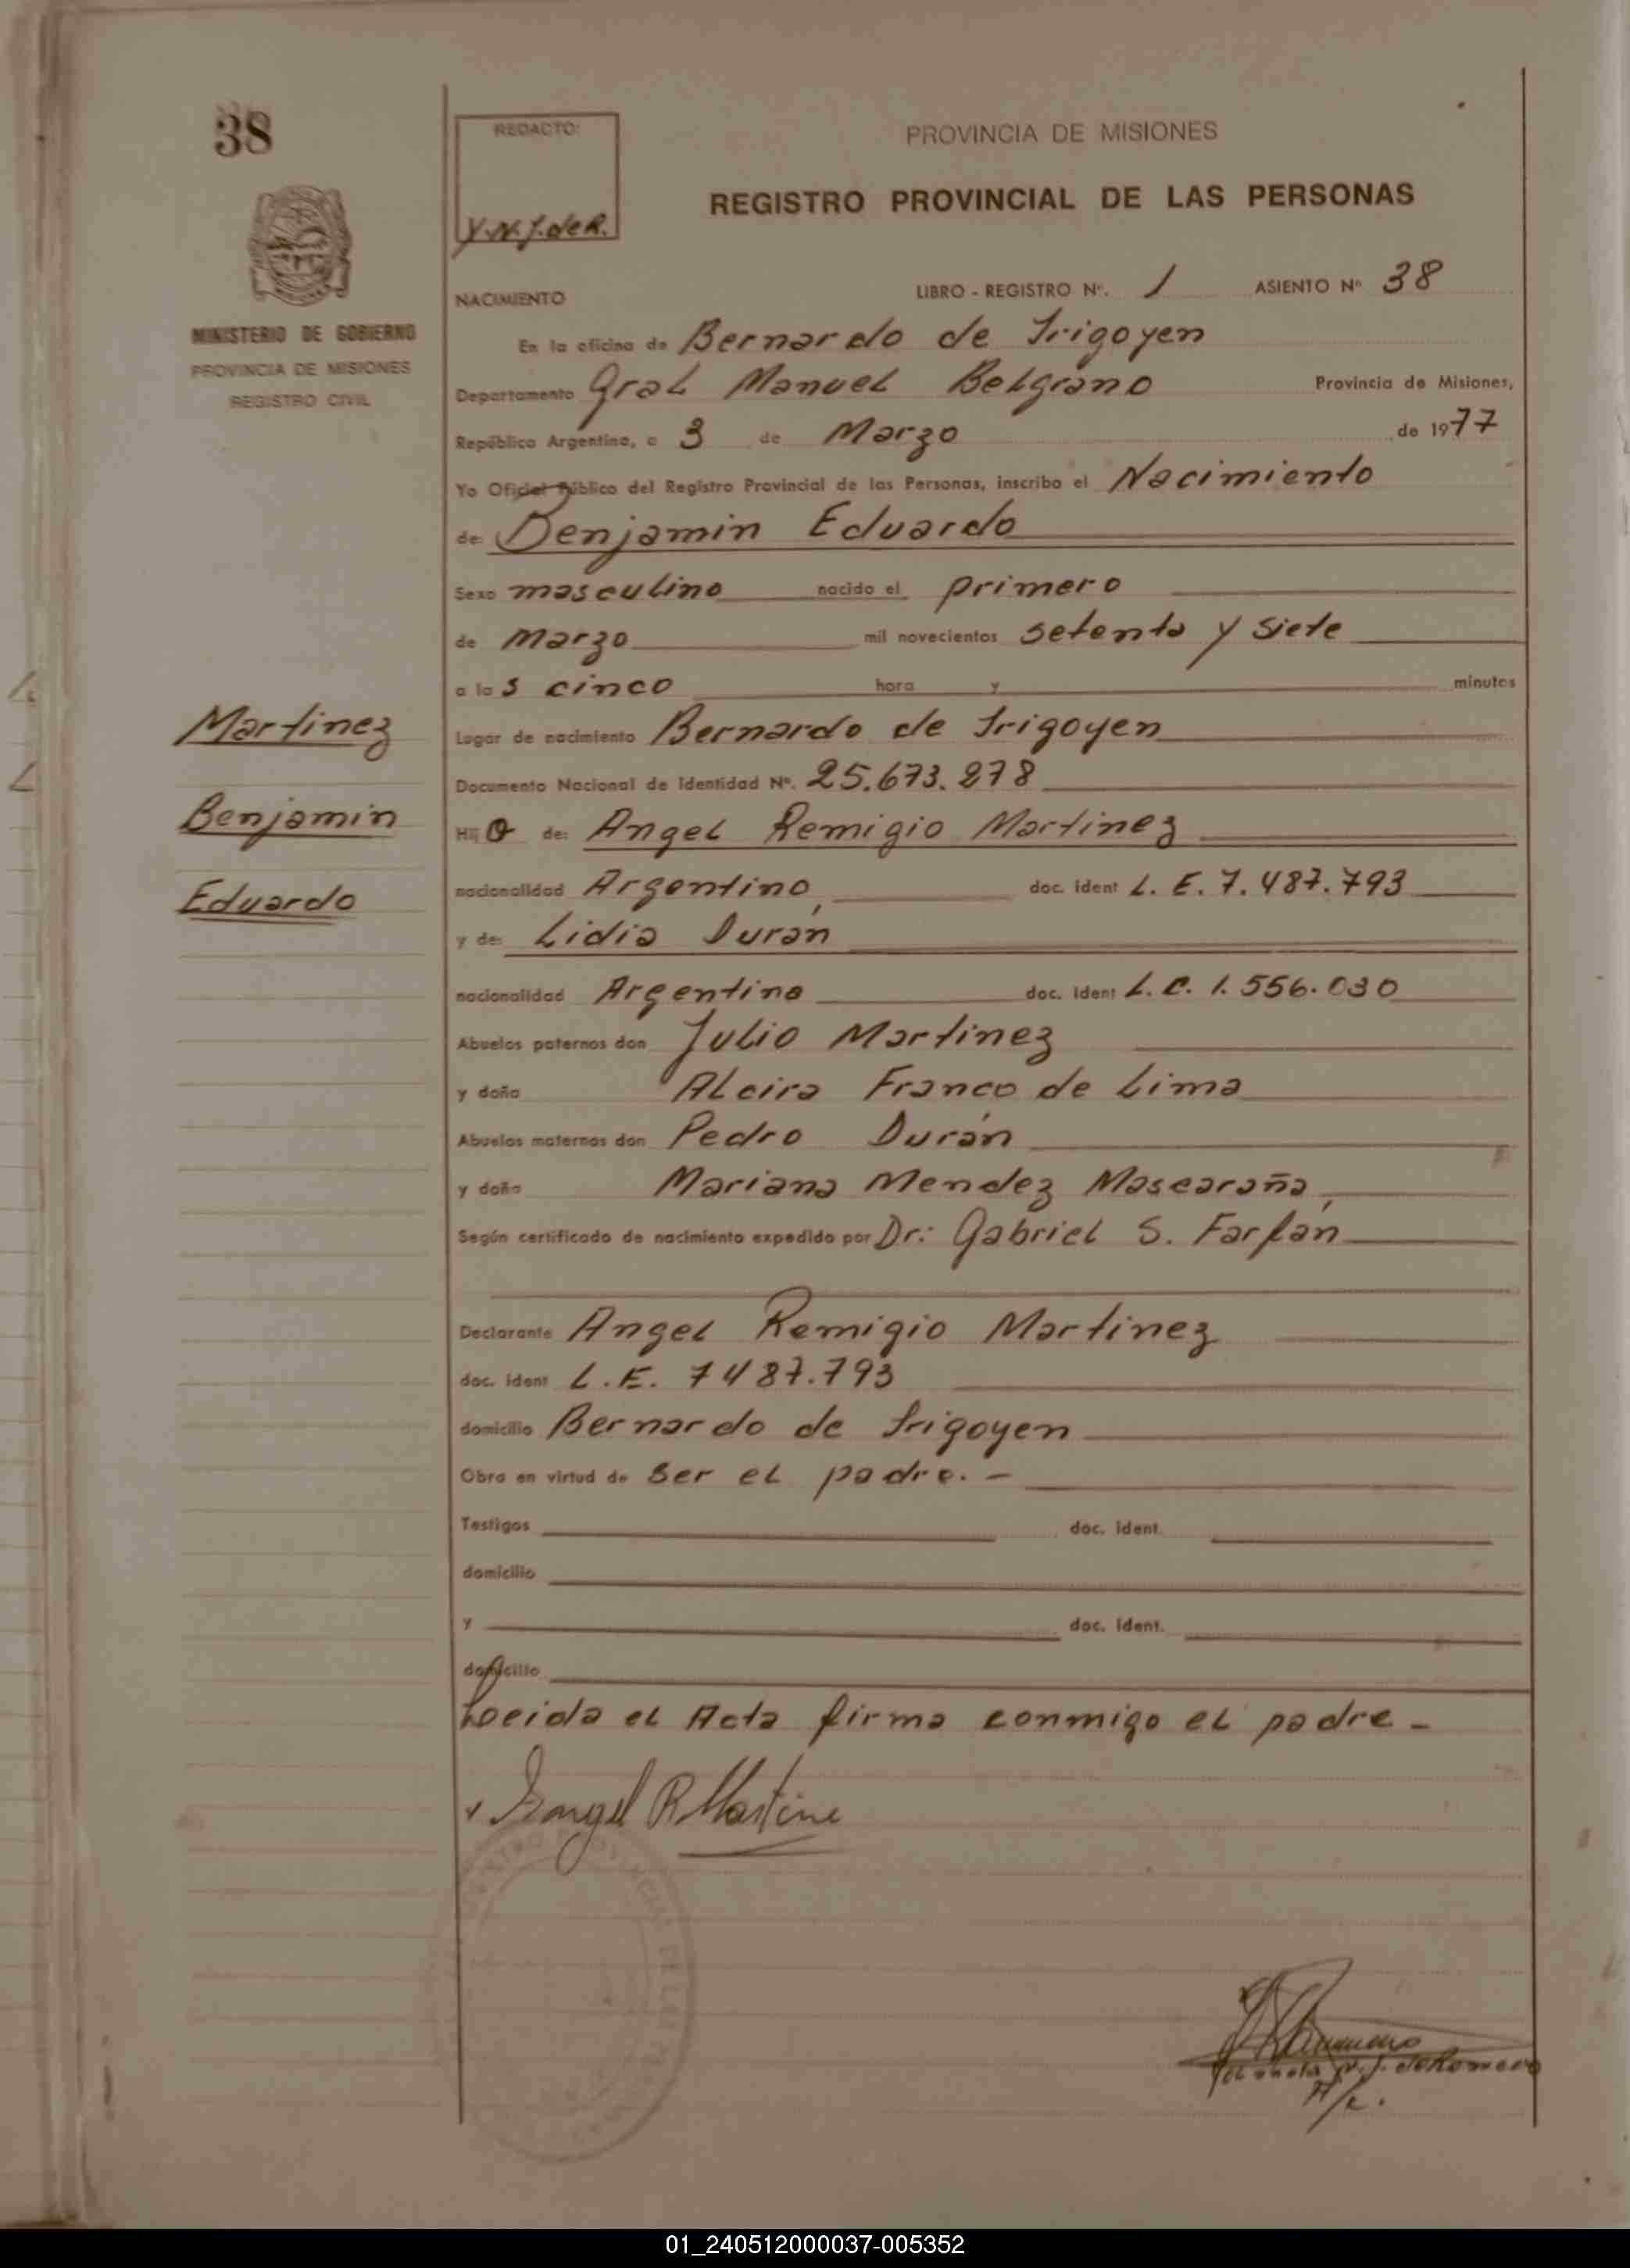 38
REDACTO:
Y.N.J.deR.
MINISTERIO DE GOBIERNO
PROVINCIA DE MISIONES
REGISTRO CIVIL
Martinez
Benjamin
Eduardo
PROVINCIA DE MISIONES
REGISTRO PROVINCIAL DE LAS PERSONAS
NACIMIENTO LIBRO - REGISTRO Nº. 1 ASIENTO Nº 38
En la oficina de Bernardo de Irigoyen
Departamento Gral Manuel Belgrano Provincia de Misiones,
República Argentina, a 3 de Marzo de 1977
Yo Oficial Público del Registro Provincial de las Personas, inscribo el Nacimiento
de: Benjamin Eduardo
Sexo masculino nacido el primero
de Marzo mil novecientos setenta y siete
a las cinco hora y minutos
Lugar de nacimiento Bernardo de Irigoyen
Documento Nacional de Identidad Nº. 25.673.278
Hijo de: Angel Remigio Martinez
nacionalidad Argentino, doc. ident L. E. 7.487.793
y de: Lidia Durán
nacionalidad Argentina doc. ident L. C. 1.556.030
Abuelos paternos don Julio Martinez
y doña Alcira Franco de Lima
Abuelos maternos don Pedro Durán
y doña Mariana Mendez Mascaraña,
Según certificado de nacimiento expedido por Dr: Gabriel S. Farfán
Declarante Angel Remigio Martinez
doc. ident L.E. 7487.793
domicilio Bernardo de Irigoyen
Obra en virtud de ser el padre. -
Testigos doc. ident.
domicilio
y doc. ident.
domicilio
Leida el Acta firma conmigo el padre -
Angel R Martine
de Romero
01_240512000037-005352